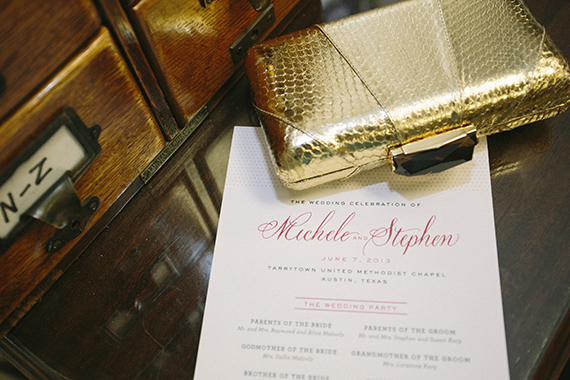 N-N
THE WEDDING CELEBRATION OF
Michele AND Stephen
JUNE 7, 2013
TARRYTOWN UNITED METHODIST CHAPEL
AUSTIN, TEXAS
THE WEDDING PARTY
PARENTS OF THE BRIDE
Mr. and Mrs. Raymond and Aline
PARENTS OF THE GROOM
Mr. and Mrs. Stephen and Susett
GODMOTHER OF THE BRIDE
Mrs. Sallie
GRANDMOTHER OF THE GROOM
Mrs. Lorainne
BROTHER OF THE BRIDE